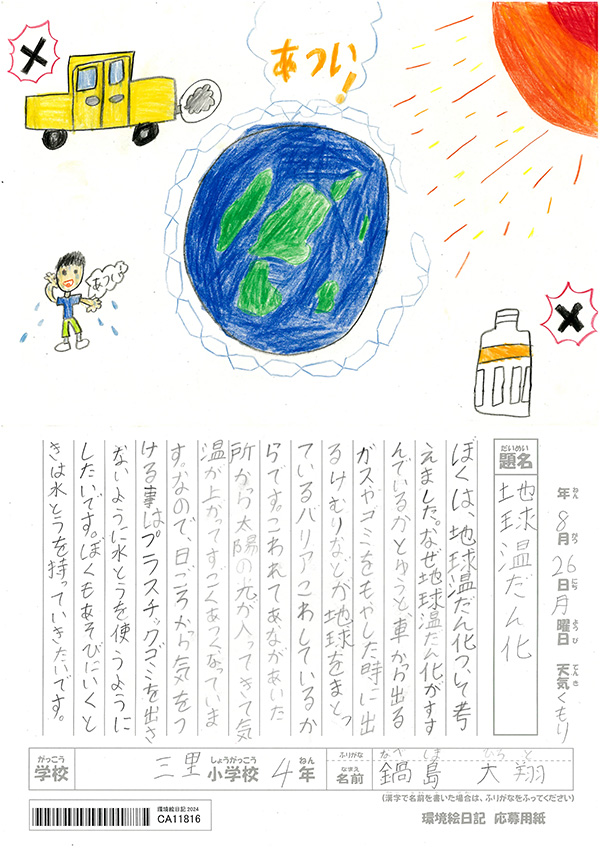 あつい!
あついよ
年 8月 26日 月曜日 天気 くもり
ねん がつ にち ようび てんき
だいめい
題名
地球温だん化
ぼくは、地球温だん化ついて考
えました。なぜ地球温だん化がすす
んでいるかとゆうと車から出る
ガスやゴミをもやした時に出
るけむりなどが地球をまとっ
ているバリアこわしているか
らです。こわれてあながあいた
所から太陽の光が入ってきて気
温が上がってすごくあつくなっていま
す。なので、日ごろから気をつ
ける事はプラスチックゴミを出さ
ないように水とうを使うように
したいです。ぼくもあそびにいくと
きは水とうを持っていきたいです。
がっこう しょうがっこう ねん ふりがな なべしま ひろと
学校 三里 小学校 4年 なまえ 名前 鍋島 大翔
(漢字で名前を書いた場合は、ふりがなをふってください)
環境絵日記 2024
CA11816
環境絵日記 応募用紙